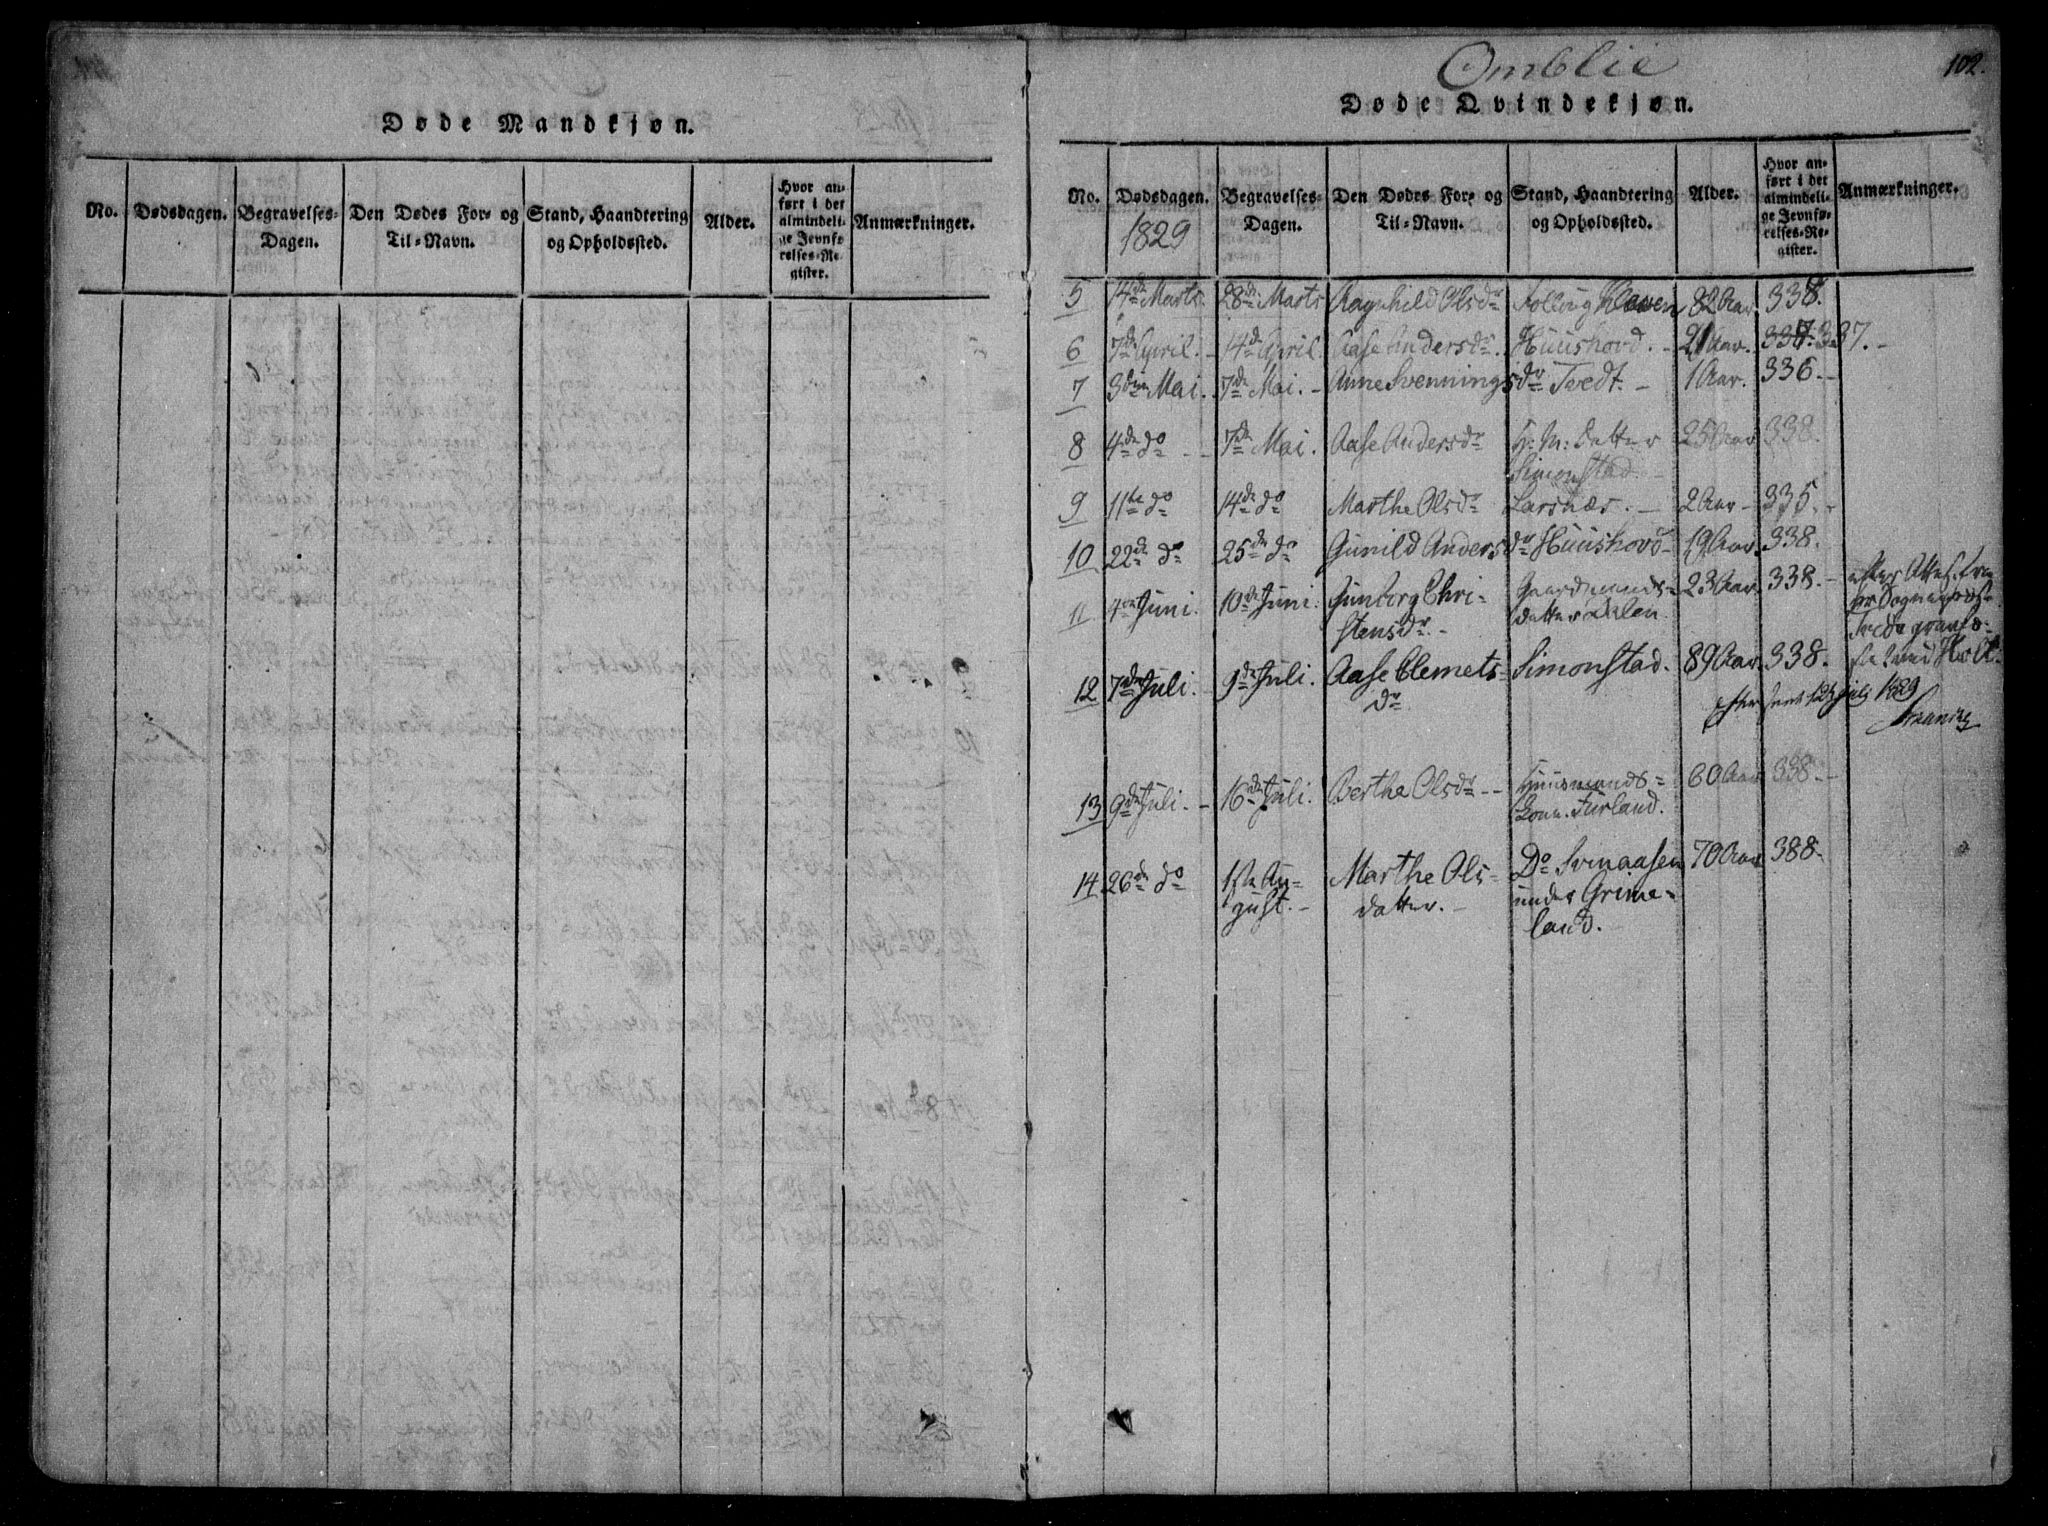 Døde Mandkjøn.
No.
Dødsdagen.
Begravelses-
Dagen.
Den Dødes For- og
Til-Navn.
Stand, Haandtering
og Opholdssted.
Alder.
Hvor an-
ført i det
almindeli-
ge Jevnfø
relses-Re-
gister.
Anmærkninger.
Omblie
102.
Døde Qvindekjøn.
No.
Dødsdagen.
1829
Begravelses-
Dagen.
Den Dødes For- og
Til-Navn.
Stand, Haandtering
og Opholdssted.
Alder.
Hvor an-
ført i det
almindeli-
ge Jevnfø-
relses-Re-
gister.
Anmærkninger.
5 14de Marts. 28de Marts Ragnhild Olsdr Kleven 82 Aar. 338.
6 7de April. - 14de April. Aase Andersdr. Huushovd. - 21 Aar. 337. -
7 3die Mai. 7de Mai. - Anne Svenningsdr Tvedt. - 1 Aar. 336. -
8 4de do - - 7de Mai. Aase Andersdr H: M: datter 25 Aar 338.
Simonstad. -
9 11te do 14de do Marthe Olsdr Larsnæs. - 2 Aar - 335. -
10 22de do 25de do Gunild Andersdr Huushovd - 19 Aar. 338.
11 4de Juni. 10de Juni. Gunborg Chri- Gaardmands- 23 Aar. 338. -
stensdr. - datter Dalen.
12 7de Juli. - 9de Juli. Aase Clemets- Simonstad. 89 Aar. 338. -
dr
Juli 1829
13 9de Juli. - 16de Juli. Berthe Olsdr - - Huusmands- 60 Aar 338. -
Kone. Furland.
14 26de do 1ste Au- Marthe Ols- Do Svenaasen 70 Aar 388.
gust. - datter. - under Grime-
land.